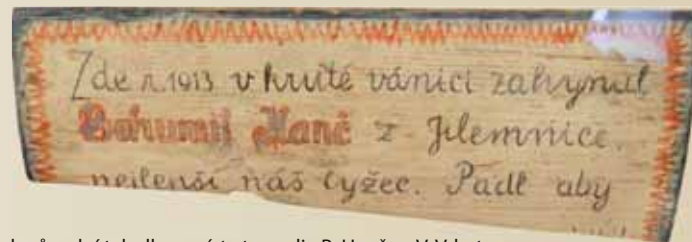 Zde r. 1913 v kruté vánici zahynul
Bohumil Hanč z Jilemnice.
nejlepší náš lyžec. Padl aby